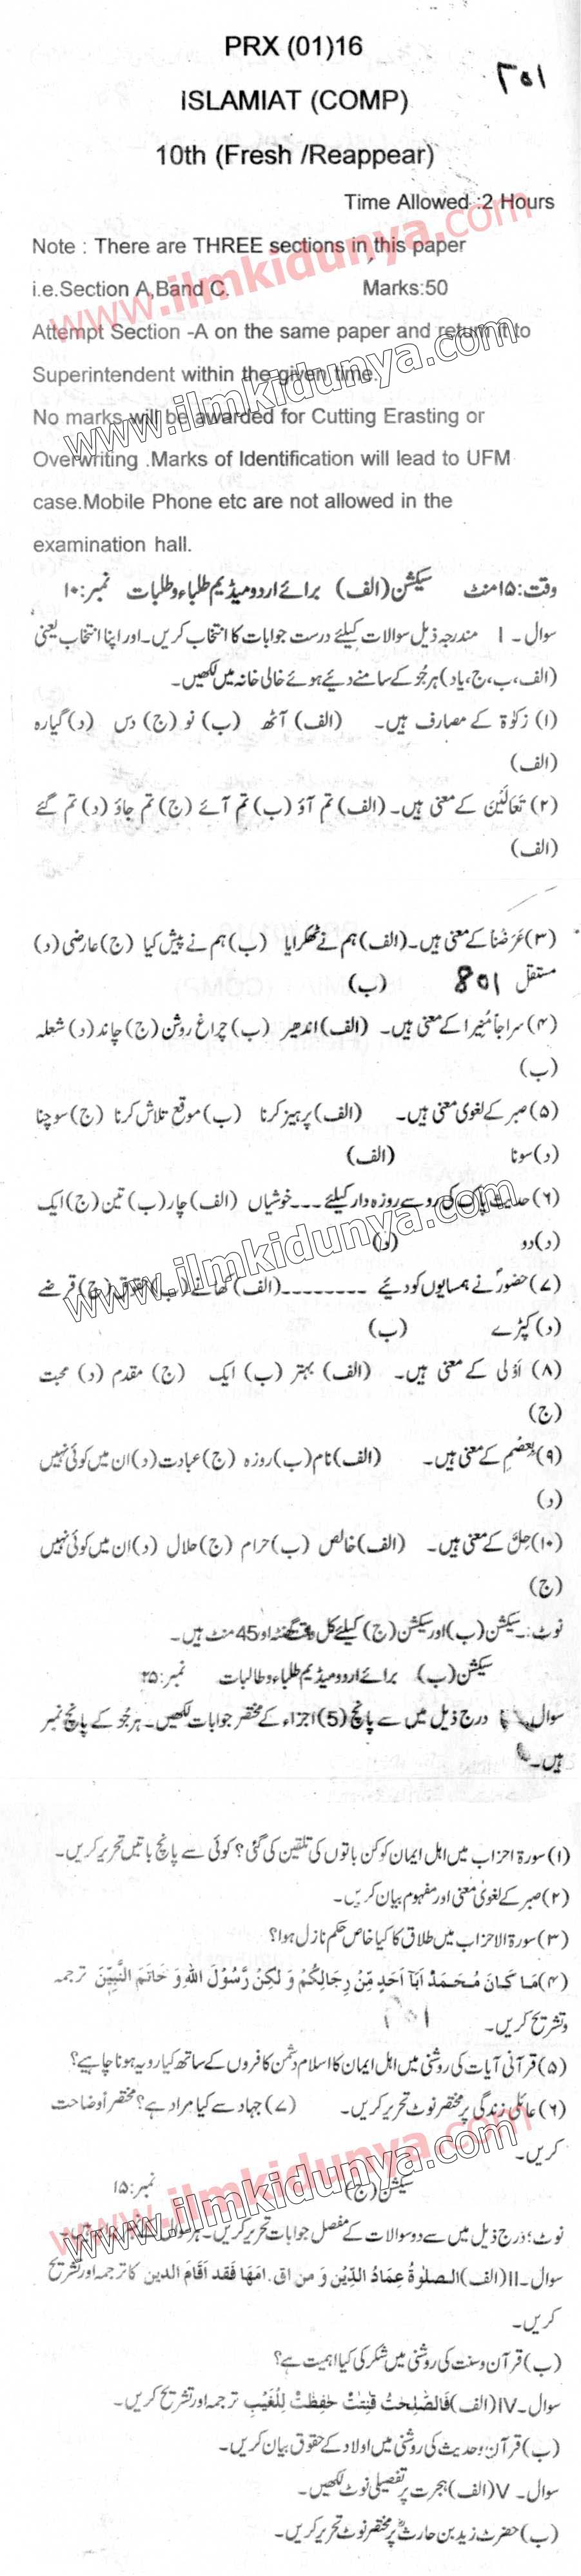 PRX (01)16
ISLAMIAT (COMP)
10th (Fresh /Reappear)
Time Allowed :2 Hours
Note : There are THREE sections in this paper
i.e.Section A,Band C. Marks:50
Attempt Section -A on the same paper and return it to
Superintendent within the given time.
No marks will be awarded for Cutting Erasting or
Overwriting .Marks of Identification will lead to UFM
case.Mobile Phone etc are not allowed in the
examination hall.
وقت:۱۵منٹ سیکشن (الف) برائے اردو میڈیم طلباء و طلبات نمبر:۱۰
سوال ۔I مندرجہ ذیل سوالات کیلئے درست جوابات کا انتخاب کریں۔اور اپنا انتخاب یعنی
(الف،ب،ج،یاد) ہر جُز کے سامنے دیئے ہوئے خالی خانہ میں لکھیں۔
(۱) زکوٰۃ کے مصارف ہیں۔ (الف) آٹھ (ب) نو (ج) دس (د) گیارہ
(الف)
(۲) تَعَالَینَ کے معنی ہیں۔ (الف) تم آؤ (ب) تم آئے (ج) تم جاؤ (د) تم گئے
(الف)
(۳) عَرَضنَا کے معنی ہیں۔ (الف) ہم نے ٹھکرایا (ب) ہم نے پیش کیا (ج) عارضی (د)
مستقل 801 (ب)
(۴) سراجاً مُنیرا کے معنی ہیں۔ (الف) اندھیر (ب) چراغ روشن (ج) چاند (د) شعلہ
(ب)
(۵) صبر کے لغوی معنی ہیں۔ (الف) پرہیز کرنا (ب) موقع تلاش کرنا (ج) سوچنا
(د) سونا (الف)
(۶) حدیث پاک کی رو سے روزہ دار کیلئے ۔۔۔خوشیاں (الف) چار (ب) تین (ج) ایک
(د) دو (د)
(۷) حضورؐ نے ہمسایوں کو دیئے ۔۔۔۔۔۔۔۔ (الف) کھانے (ب) حقوق (ج) قرضے
(د) کپڑے (ب)
(۸) اَوْلٰی کے معنی ہیں۔ (الف) بہتر (ب) ایک (ج) مقدم (د) محبت
(ج)
(۹) بِعِصَمِ کے معنی ہیں۔ (الف) نام (ب) روزہ (ج) عبادت (د) ان میں کوئی نہیں
(د)
(۱۰) حِلّ کے معنی ہیں۔ (الف) خالص (ب) حرام (ج) حلال (د) ان میں کوئی نہیں
(ج)
نوٹ:۔ سیکشن (ب) اور سیکشن (ج) کیلئے کل وقت گھنٹہ اور 45 منٹ ہیں۔
سیکشن (ب) برائے اردو میڈیم طلباء و طالبات نمبر:۲۵
سوال درج ذیل میں سے پانچ (5) اجزاء کے مختصر جوابات لکھیں۔ ہر جُز کے پانچ نمبر
ہیں۔
(۱) سورۃ احزاب میں اہل ایمان کو کن باتوں کی تلقین کی گئی؟ کوئی سے پانچ باتیں تحریر کریں۔
(۲) صبر کے لغوی معنی اور مفہوم بیان کریں۔
(۳) سورۃ الاحزاب میں طلاق کا کیا خاص حکم نازل ہوا؟
(۴) مَا كَانَ مُحَمَدُ اَبَآ اَحَدٍ مِّنْ رِجَالِكُمْ وَ لٰكِنْ رَّسُوْلَ اللهِ وَ خَاتَمَ النَّبِيّنَ ترجمہ
و تشریح کریں۔
(۵) قرآنی آیات کی روشنی میں اہل ایمان کا اسلام دشمن کافروں کے ساتھ کیا رویہ ہونا چاہیے؟
(۶) عائلی زندگی پر مختصر نوٹ تحریر کریں۔ (۷) جہاد سے کیا مراد ہے؟ مختصر اوضاحت
کریں۔
سیکشن (ج) نمبر:۱۵
نوٹ: درج ذیل میں سے دو سوالات کے مفصل جوابات تحریر کریں۔
سوال ۔II (الف) الـصلوٰةُ عِمَادُ الدِّيْنِ وَ مَن اق.امَهَا فَقَد اَقَامَ الدين کا ترجمہ اور تشریح
کریں۔
(ب) قرآن و سنت کی روشنی میں شکر کی کیا اہمیت ہے؟
سوال ۔IV (الف) فَالصّٰلِحٰتُ قٰنِتٰتٌ حٰفِظٰتٌ لِّلْغَيْبِ ترجمہ اور تشریح کریں۔
(ب) قرآن و حدیث کی روشنی میں اولاد کے حقوق بیان کریں۔
سوال ۔V (الف) ہجرت پر تفصیلی نوٹ لکھیں۔
(ب) حضرت زید بن حارثؓ پر مختصر نوٹ تحریر کریں۔
www.ilmkidunya.com
www.ilmkidunya.com
www.ilmkidunya.com
www.ilmkidunya.com
www.ilmkidunya.com